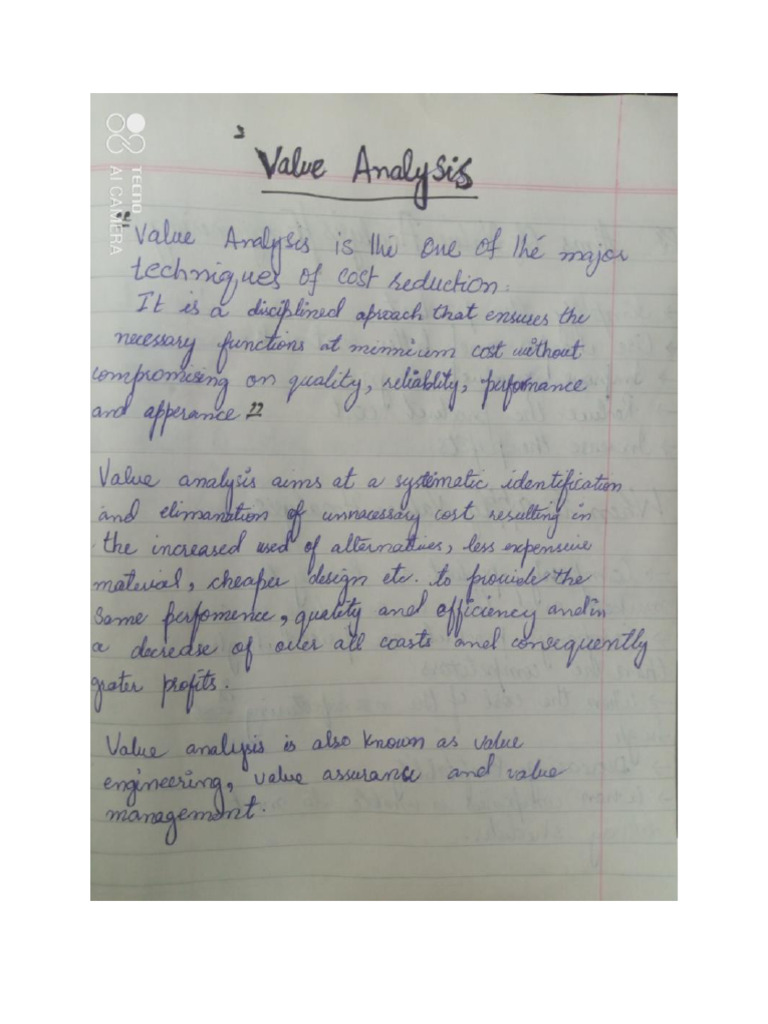 Value Analysis
TECNO
AI CAMERA
"Value Analysis is the one of the major
techniques of cost reduction.
It is a disciplined aproach that ensures the
necessary functions at minnium cost without
compromising on quality, reliablity, perfomance
and apperance"
Value analysis aims at a systematic identification
and elimanation of unnacessary cost resulting in
the increased used of alternatives, less expensive
material, cheaper design etc. to provide the
same perfomence, quality and efficiency and in
a decrease of over all coasts and consequently
grater profits.
Value analysis is also known as value
engineering, value assurance and value
management.